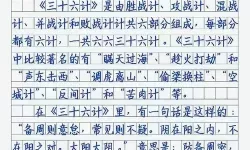 《三十六计》是由胜战计、攻战计、混战
计、并战计和败战计计共六部分组成，每部分
都有六计，一共六六三十六计。《三十六计》
中比较著名的有“瞒天过海”、“趁火打动”和
“声东击西”、“调虎离山”、“偷梁换柱”、“空
城计”、“反间计”和“苦肉计”等。
在《三十六计》里，有一句话是这样的：
“备周则意怠，常见则不疑。阴在阳之内，不
在阳之对。太阳太阴。”意思是：防备密